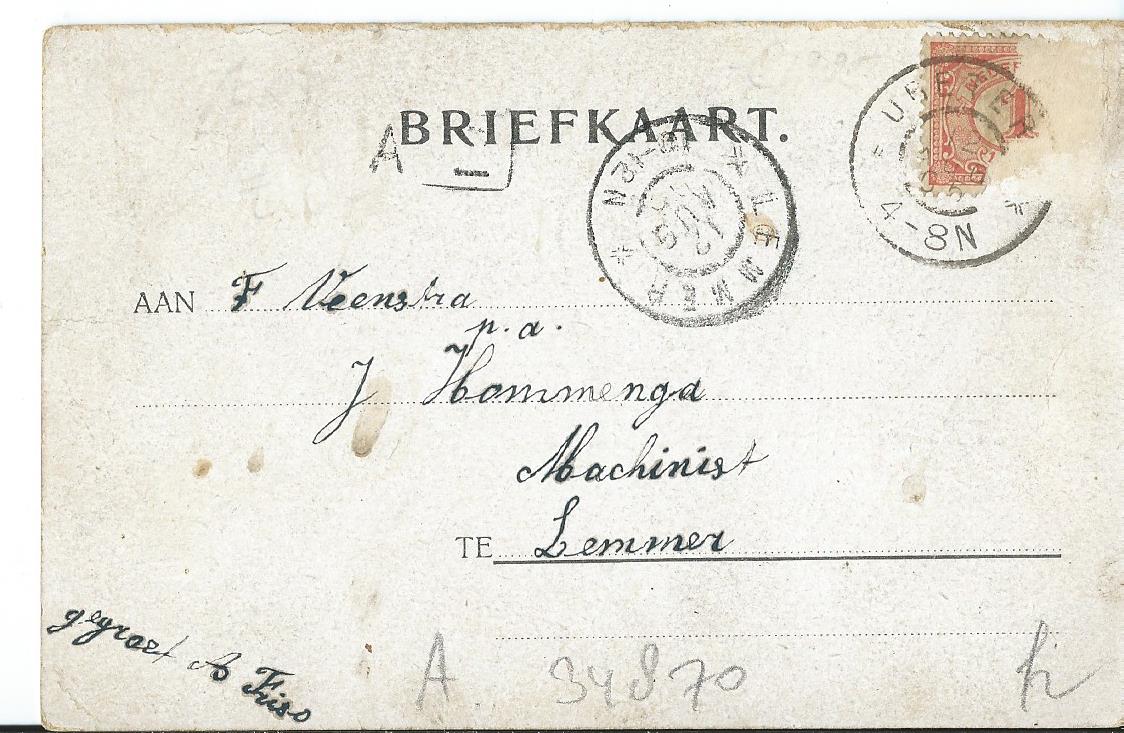 BRIEFKAART.
A
LEMMER
12 AUG
10-12N
4-8N
AAN F Veenstra
p.a.
J Hommenga
Machinist
TE Lemmer
gegroet A Friso
A 34870